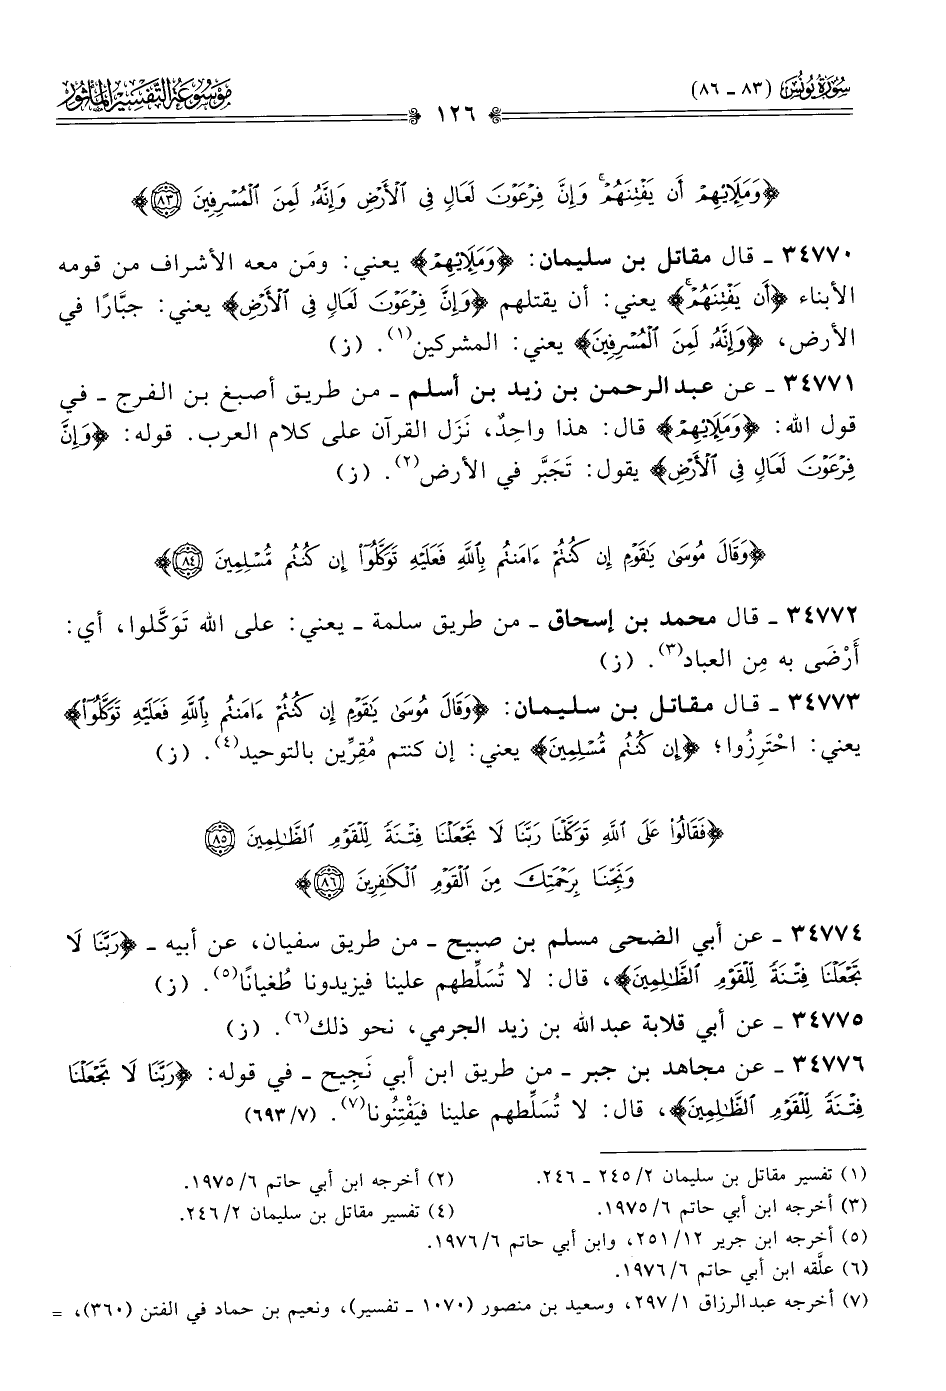 سورة يونس (٨٣ - ٨٦)
١٢٦
موسوعة التفسير المأثور
﴿وَمَلَإِيْهِمْ أَن يَفْتِنَهُمْ ۚ وَإِنَّ فِرْعَوْنَ لَعَالٍ فِي ٱلْأَرْضِ وَإِنَّهُۥ لَمِنَ ٱلْمُسْرِفِينَ ٨٣﴾
٣٤٧٧٠ - قال مقاتل بن سليمان: ﴿وَمَلَإِيْهِمْ﴾ يعني: ومَن معه الأشراف من قومه
الأبناء ﴿أَن يَفْتِنَهُمْ ۚ﴾ يعني: أن يقتلهم ﴿وَإِنَّ فِرْعَوْنَ لَعَالٍ فِي ٱلْأَرْضِ﴾ يعني: جبَّارًا في
الأرض، ﴿وَإِنَّهُۥ لَمِنَ ٱلْمُسْرِفِينَ﴾ يعني: المشركين(١). (ز)
٣٤٧٧١ - عن عبد الرحمن بن زيد بن أسلم - من طريق أصبغ بن الفرج - في
قول الله: ﴿وَمَلَإِيْهِمْ﴾ قال: هذا واحِدٌ، نَزَل القرآن على كلام العرب. قوله: ﴿وَإِنَّ
فِرْعَوْنَ لَعَالٍ فِي ٱلْأَرْضِ﴾ يقول: تَجَبَّر في الأرض(٢). (ز)
﴿وَقَالَ مُوسَىٰ يَٰقَوْمِ إِن كُنتُمْ ءَامَنتُم بِٱللَّهِ فَعَلَيْهِ تَوَكَّلُوٓا۟ إِن كُنتُم مُّسْلِمِينَ ٨٤﴾
٣٤٧٧٢ - قال محمد بن إسحاق - من طريق سلمة - يعني: على الله تَوَكَّلوا، أي:
أَرْضَى به مِن العباد(٣). (ز)
٣٤٧٧٣ - قال مقاتل بن سليمان: ﴿وَقَالَ مُوسَىٰ يَٰقَوْمِ إِن كُنتُمْ ءَامَنتُم بِٱللَّهِ فَعَلَيْهِ تَوَكَّلُوٓا۟﴾
يعني: احْتَرِزُوا؛ ﴿إِن كُنتُم مُّسْلِمِينَ﴾ يعني: إن كنتم مُقِرِّين بالتوحيد(٤). (ز)
﴿فَقَالُوا۟ عَلَى ٱللَّهِ تَوَكَّلْنَا رَبَّنَا لَا تَجْعَلْنَا فِتْنَةً لِّلْقَوْمِ ٱلظَّٰلِمِينَ ٨٥
وَنَجِّنَا بِرَحْمَتِكَ مِنَ ٱلْقَوْمِ ٱلْكَٰفِرِينَ ٨٦﴾
٣٤٧٧٤ - عن أبي الضحى مسلم بن صبيح - من طريق سفيان، عن أبيه - ﴿رَبَّنَا لَا
تَجْعَلْنَا فِتْنَةً لِّلْقَوْمِ ٱلظَّٰلِمِينَ﴾، قال: لا تُسَلِّطهم علينا فيزيدونا طُغيانًا(٥). (ز)
٣٤٧٧٥ - عن أبي قلابة عبد الله بن زيد الجرمي، نحو ذلك(٦). (ز)
٣٤٧٧٦ - عن مجاهد بن جبر - من طريق ابن أبي نَجِيح - في قوله: ﴿رَبَّنَا لَا تَجْعَلْنَا
فِتْنَةً لِّلْقَوْمِ ٱلظَّٰلِمِينَ﴾، قال: لا تُسَلِّطهم علينا فيَفْتِنُونا(٧). (٧/٦٩٣)
(١) تفسير مقاتل بن سليمان ٢/٢٤٥ - ٢٤٦.
(٢) أخرجه ابن أبي حاتم ٦/١٩٧٥.
(٣) أخرجه ابن أبي حاتم ٦/١٩٧٥.
(٤) تفسير مقاتل بن سليمان ٢/٢٤٦.
(٥) أخرجه ابن جرير ١٢/٢٥١، وابن أبي حاتم ٦/١٩٧٦.
(٦) علَّقه ابن أبي حاتم ٦/١٩٧٦.
(٧) أخرجه عبد الرزاق ١/٢٩٧، وسعيد بن منصور (١٠٧٠ - تفسير)، ونعيم بن حماد في الفتن (٣٦٠)، =